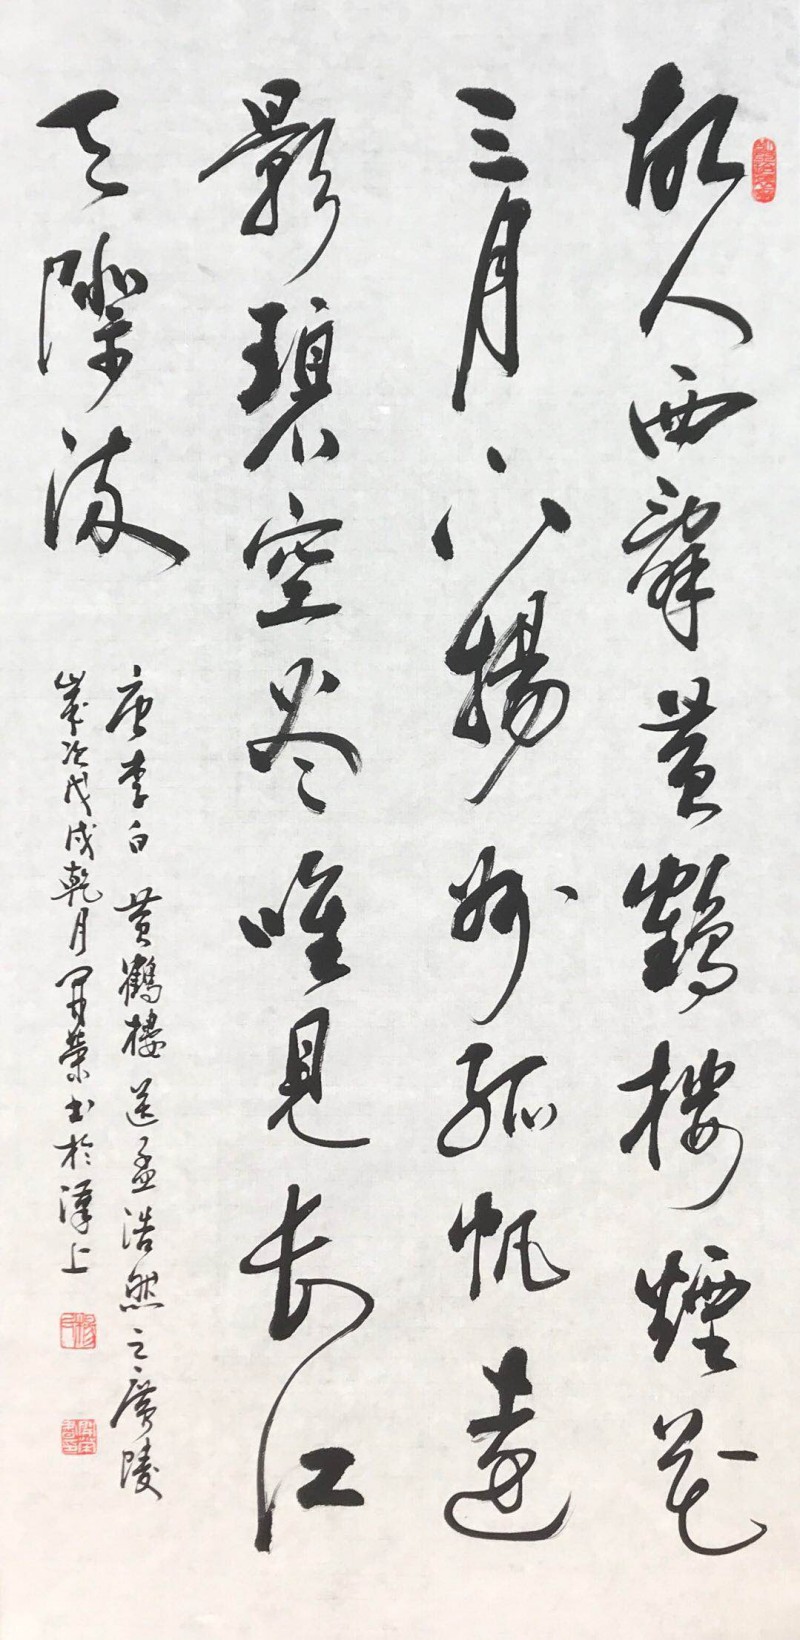 故人西辭黄鶴樓煙花
三月下揚州孤帆遠
影碧空尽唯見長江
天際流
唐李白黄鶴樓送孟浩然之廣陵
歲次戊戌乾月 榮书於漢上